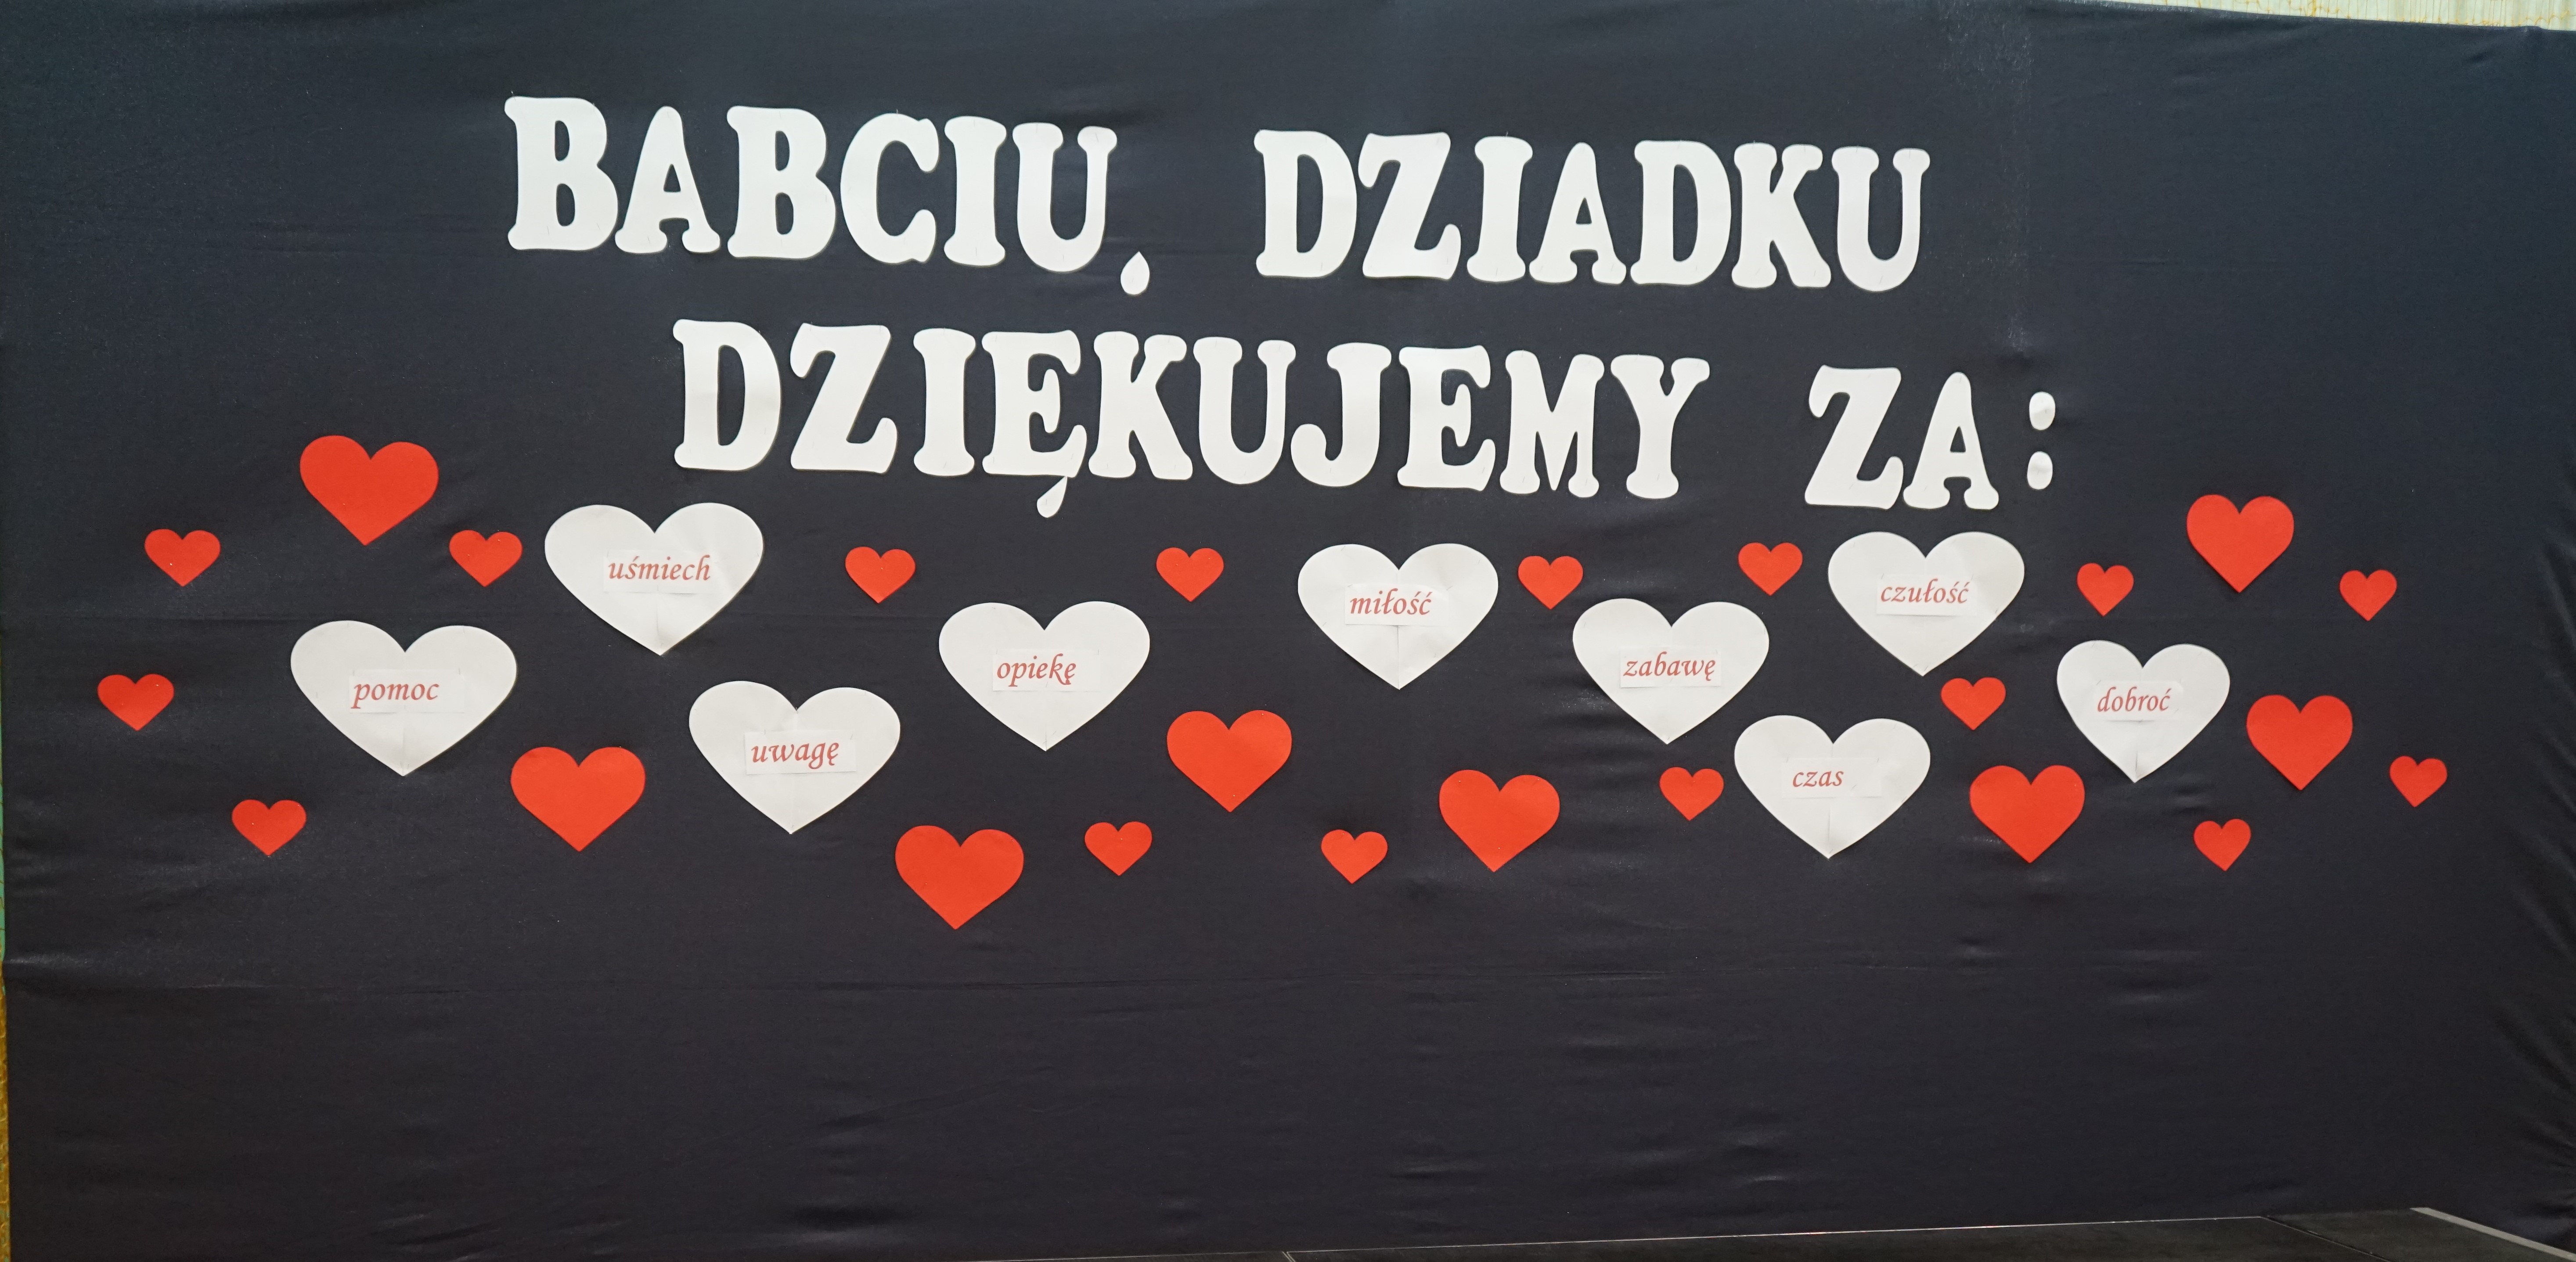 BABCIU, DZIADKU
DZIĘKUJEMY ZA:
uśmiech
miłość
czułość
pomoc
opiekę
zabawę
dobroć
uwagę
czas